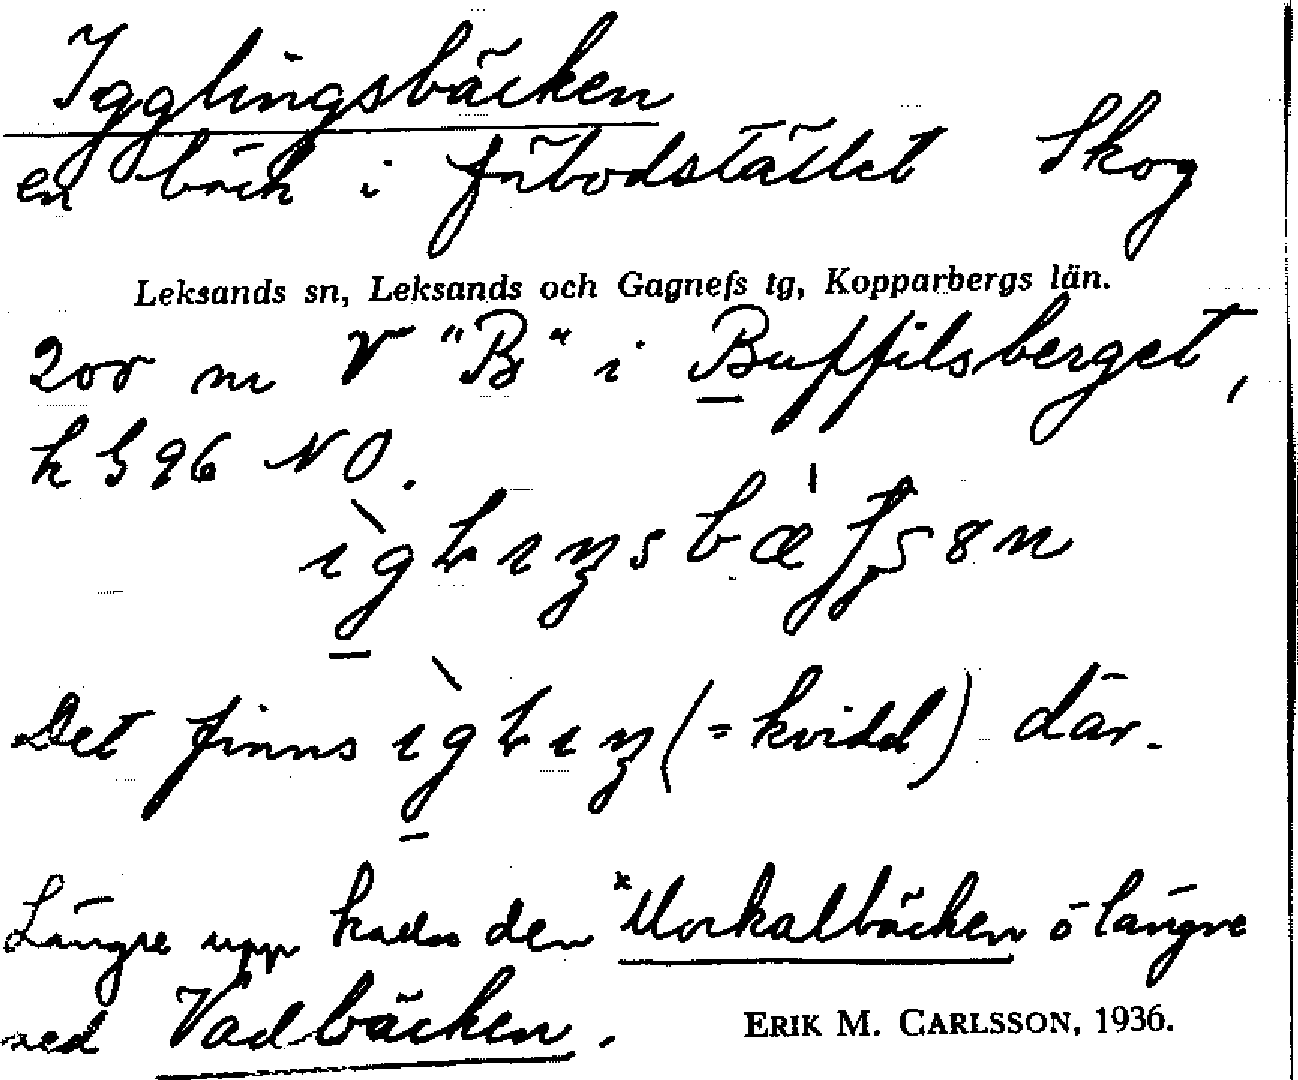 Igglingsbäcken
en bäck i fäbodstället Skog
Leksands sn, Leksands och Gagnefs tg, Kopparbergs län.
200 m V "B" i Buffilsberget,
k G 96 NO.
Det finns (= kvidd) där.
Längre upp kallas den Morkalbäcken o längre
ned Vadbäcken.
ERIK M. CARLSSON, 1936.